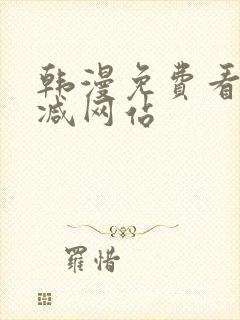 韩漫免费看
减网佔
羅惜